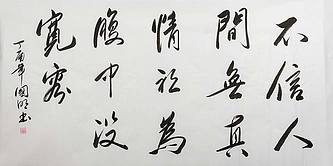 不信人
間無真
情祇為
腹中没
寬容
丁酉年國明书